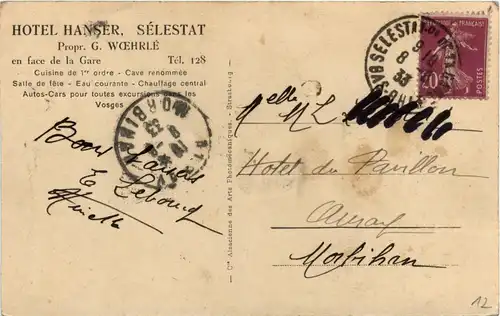 HOTEL HANSER, SÉLESTAT
Propr. G. WŒHRLÉ
en face de la Gare Tél. 128
Cuisine de 1er ordre - Cave renommée
Salle de fête - Eau courante - Chauffage central
Autos-Cars pour toutes excursions dans les
Vosges
Bons
E. Leboucq
Cie Alsacienne des Arts Photomécaniques - Strasbourg
SÉLESTAT
BAS-RHIN
8
33
POSTES
20c
MORBIHAN
Melle M. L.
Hotel du Pavillon
Auray
Morbihan
12